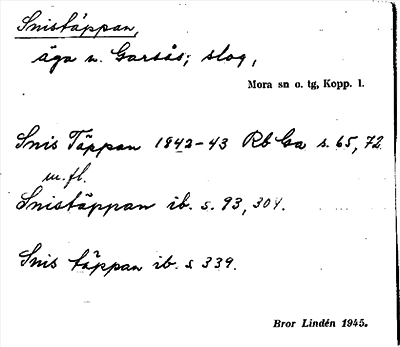 Snistäppan,
äga n. Garsås; slog,
Mora sn o. tg, Kopp. l.
Snis Täppan 1842-43 Rb Ga s. 65, 72
m.fl.
Snistäppan ib. s. 93, 304.
Snis täppan ib. s 339.
Bror Lindén 1945.